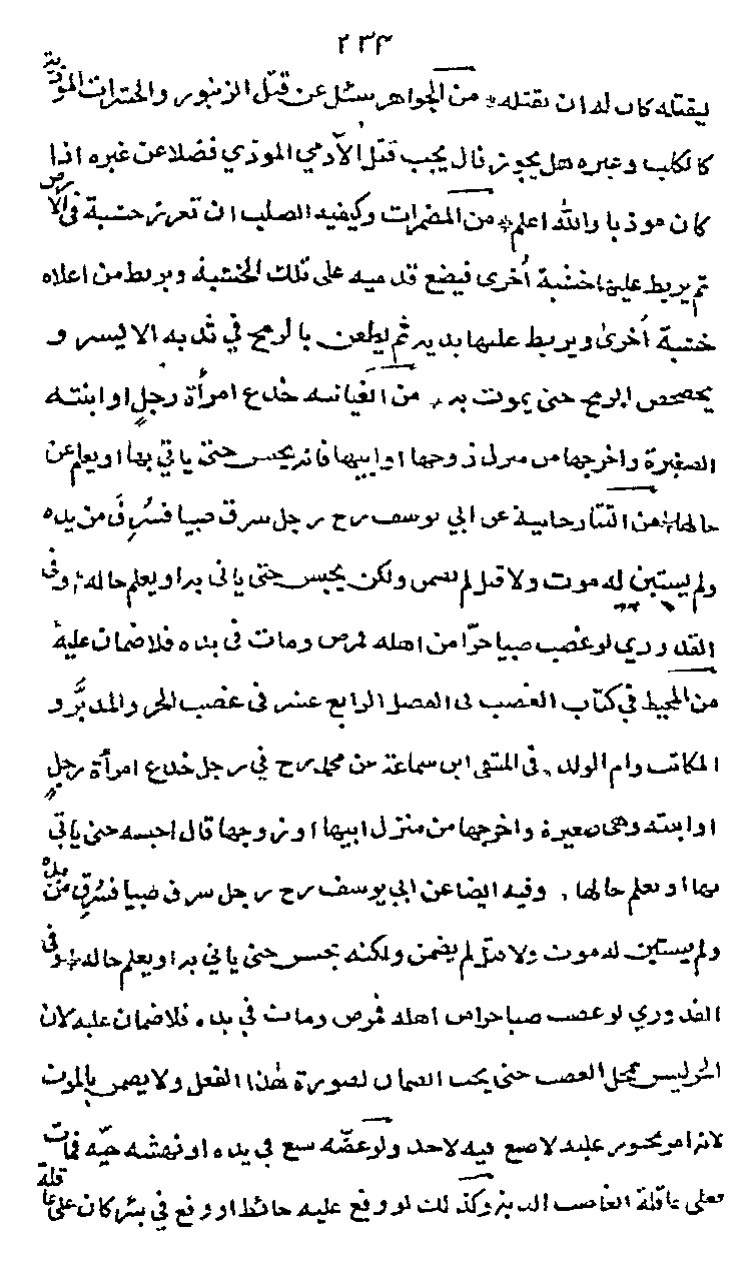 ٢٣٤
ليقتله كان له ان يقتله * من الجواهر سئل عن قتل الزنبور والحشرات المؤذية
كالكلب وغيره هل يجوز قال يجب قتل الآدمي الموذي فضلا عن غيره اذا
كان موذيا والله اعلم * من المضمرات وكيفيه الصلب ان تغرز خشبة في الارض
ثم يربط عليها خشبة أخرى فيضع قدميه على تلك الخشبة ويربط من اعلاه
خشبة أخرى ويربط عليها يديه ثم يطعن بالرمح في ثديه الايسر و
يخضخض الرمح حتى يموت به * من الغياثيه خدع امرأة رجل او ابنته
الصغيرة واخرجها من منزل زوجها او ابيها فانه يحبس حتى ياتي بها او يعلم عن
حالها * من التتارخانية عن ابي يوسف رح رجل سرق صبيا فسُرِقَ من يده
ولم يستبن له موت ولا قتل لم يضمن ولكن يحبس حتى ياتي به او يعلم حاله * وفي
القدوري لو غصب صبيا حرّا من اهله فمرض ومات في يده فلا ضمان عليه
من المحيط في كتاب الغصب في الفصل الرابع عشر في غصب الحر والمدبَّر و
المكاتب وام الولد ، في المنتقى ابن سماعة عن محمد رح في رجل خدع امرأة رجل
او ابنته وهي صغيرة واخرجها من منزل ابيها او زوجها قال احبسه حتى ياتي
بها او يعلم حالها ، وفيه ايضا عن ابي يوسف رح رجل سرق صبيا فسُرِق من يده
ولم يستبن له موت ولا قتل لم يضمن ولكنه يحبس حتى ياتي به او يعلم حاله * وفي
القدوري لو غصب صبيا حرا من اهله فمرض ومات في يده فلا ضمان عليه لان
الحر ليس بمحل الغصب حتى يجب الضمان لصورة هذا الفعل ولا يضمن بالموت
لانه امر محتوم عليه لا صنع فيه لاحد ولو عضّه سبع في يده او نهشه حيّه فمات
فعلى عاقلة الغاصب الدية وكذلك لو وقع عليه حائط او وقع في بئر كان على عاقلة